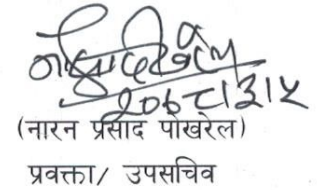 २०७८।३।५
(नारन प्रसाद पोखरेल)
प्रवक्ता/ उपसचिव